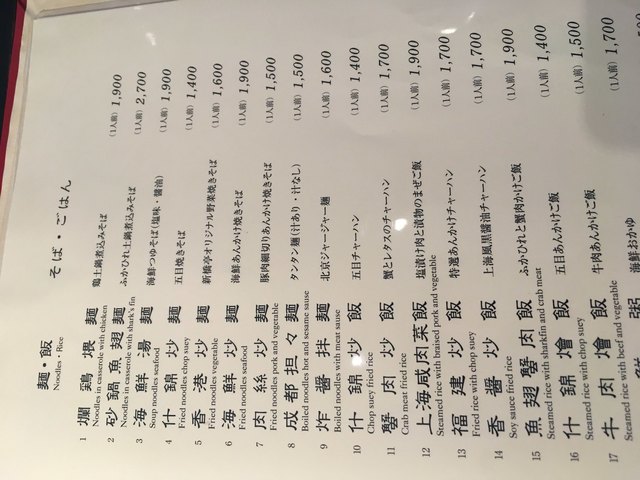 麺・飯 そば・ごはん
Noodles・Rice
1 爛鶏煨麺 鶏土鍋煮込みそば (1人前) 1,900
Noodles in casserole with chicken
2 砂鍋魚翅麺 ふかひれ土鍋煮込みそば (1人前) 2,700
Noodles in casserole with shark's fin
3 海鮮湯麺 海鮮つゆそば(塩味・醤油) (1人前) 1,900
Soup noodles seafood
4 什錦炒麺 五目焼きそば (1人前) 1,400
Fried noodles chop suey
5 香港炒麺 新橋亭オリジナル野菜焼きそば (1人前) 1,600
Fried noodles vegetable
6 海鮮炒麺 海鮮あんかけ焼きそば (1人前) 1,900
Fried noodles seafood
7 肉絲炒麺 豚肉細切りあんかけ焼きそば (1人前) 1,500
Fried noodles pork and vegetable
8 成都担々麺 タンタン麺(汁あり・汁なし) (1人前) 1,500
Boiled noodles hot and sesame sause
9 炸醤拌麺 北京ジャージャー麺 (1人前) 1,600
Boiled noodles with meat sause
10 什錦炒飯 五目チャーハン (1人前) 1,400
Chop suey fried rice
11 蟹肉炒飯 蟹とレタスのチャーハン (1人前) 1,700
Crab meat fried rice
12 上海咸肉菜飯 塩漬け肉と漬物のまぜご飯 (1人前) 1,900
Steamed rice with braised pork and vegetable
13 福建炒飯 特選あんかけチャーハン (1人前) 1,700
Fried rice with chop suey
14 香醤炒飯 上海風黒醤油チャーハン (1人前) 1,700
Soy sauce fried rice
15 魚翅蟹肉飯 ふかひれと蟹肉かけご飯 (1人前) 1,900
Steamed rice with sharkfin and crab meat
16 什錦燴飯 五目あんかけご飯 (1人前) 1,400
Steamed rice with chop suey
17 牛肉燴飯 牛肉あんかけご飯 (1人前) 1,500
Steamed rice with beef and vegetable
粥 海鮮おかゆ (1人前) 1,700